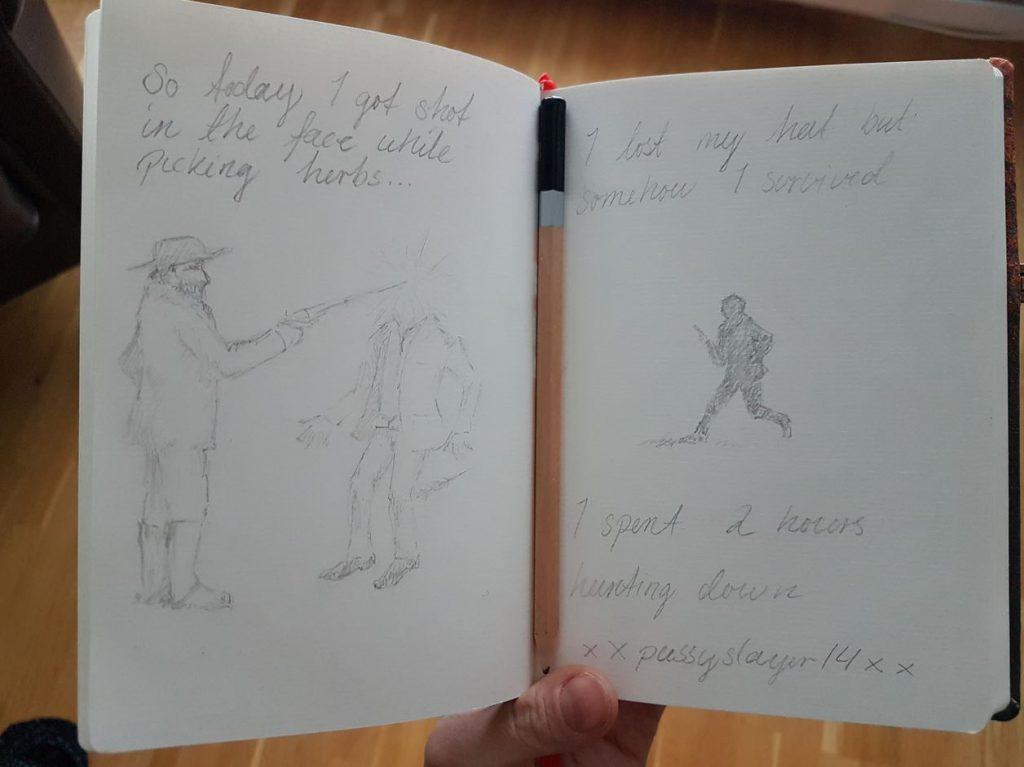 So today I got shot
in the face while
picking herbs...
I lost my hat but
somehow I survived
I spent 2 hours
hunting down
xXpussyslayer14xx